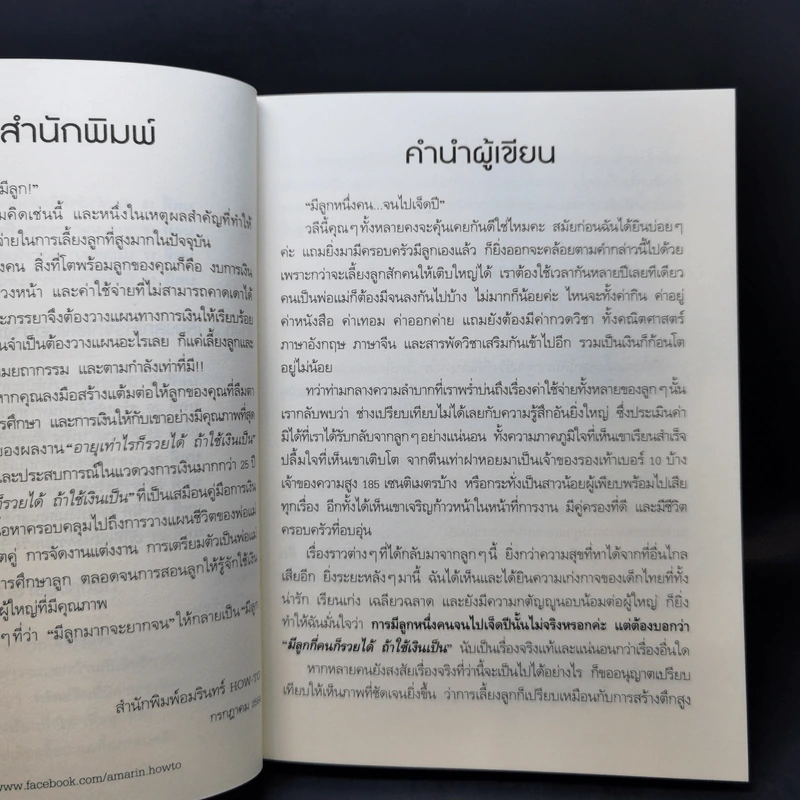 สำนักพิมพ์
มีลูก!”
มคิดเช่นนี้ และหนึ่งในเหตุผลสำคัญที่ทำให้
จ่ายในการเลี้ยงลูกที่สูงมากในปัจจุบัน
งคน สิ่งที่โตพร้อมลูกของคุณก็คือ งบการเงิน
วงหน้า และค่าใช้จ่ายที่ไม่สามารถคาดเดาได้
ะภรรยาจึงต้องวางแผนทางการเงินให้เรียบร้อย
นจำเป็นต้องวางแผนอะไรเลย ก็แค่เลี้ยงลูกและ
มยถากรรม และตามกำลังเท่าที่มี!!
หากคุณลงมือสร้างแต้มต่อให้ลูกของคุณที่ลืมตา
รศึกษา และการเงินให้กับเขาอย่างมีคุณภาพที่สุด
ของผลงาน “อายุเท่าไรก็รวยได้ ถ้าใช้เงินเป็น”
และประสบการณ์ในแวดวงการเงินมากกว่า 25 ปี
ก็รวยได้ ถ้าใช้เงินเป็น” ที่เป็นเสมือนคู่มือการเงิน
นื้อหาครอบคลุมไปถึงการวางแผนชีวิตของพ่อแม่
ตคู่ การจัดงานแต่งงาน การเตรียมตัวเป็นพ่อแม่
การศึกษาลูก ตลอดจนการสอนลูกให้รู้จักใช้เงิน
ผู้ใหญ่ที่มีคุณภาพ
ๆ ที่ว่า “มีลูกมากจะยากจน” ให้กลายเป็น “มีลูก
สำนักพิมพ์อมรินทร์ HOW-TO
กรกฎาคม
www.facebook.com/amarin.howto
คำนำผู้เขียน
“มีลูกหนึ่งคน...จนไปเจ็ดปี”
วลีนี้คุณๆ ทั้งหลายคงจะคุ้นเคยกันดีใช่ไหมคะ สมัยก่อนฉันได้ยินบ่อยๆ
ค่ะ แถมยิ่งมามีครอบครัวมีลูกเองแล้ว ก็ยิ่งออกจะคล้อยตามคำกล่าวนี้ไปด้วย
เพราะกว่าจะเลี้ยงลูกสักคนให้เติบใหญ่ได้ เราต้องใช้เวลากันหลายปีเลยทีเดียว
คนเป็นพ่อแม่ก็ต้องมีจนลงกันไปบ้าง ไม่มากก็น้อยค่ะ ไหนจะทั้งค่ากิน ค่าอยู่
ค่าหนังสือ ค่าเทอม ค่าออกค่าย แถมยังต้องมีค่ากวดวิชา ทั้งคณิตศาสตร์
ภาษาอังกฤษ ภาษาจีน และสารพัดวิชาเสริมกันเข้าไปอีก รวมเป็นเงินก็ก้อนโต
อยู่ไม่น้อย
ทว่าท่ามกลางความลำบากที่เราพร่ำบ่นถึงเรื่องค่าใช้จ่ายทั้งหลายของลูกๆ นั้น
เรากลับพบว่า ช่างเปรียบเทียบไม่ได้เลยกับความรู้สึกอันยิ่งใหญ่ ซึ่งประเมินค่า
มิได้ที่เราได้รับกลับจากลูกๆ อย่างแน่นอน ทั้งความภาคภูมิใจที่เห็นเขาเรียนสำเร็จ
ปลื้มใจที่เห็นเขาเติบโต จากตีนเท่าฝาหอยมาเป็นเจ้าของรองเท้าเบอร์ 10 บ้าง
เจ้าของความสูง 185 เซนติเมตรบ้าง หรือกระทั่งเป็นสาวน้อยผู้เพียบพร้อมไปเสีย
ทุกเรื่อง อีกทั้งได้เห็นเขาเจริญก้าวหน้าในหน้าที่การงาน มีคู่ครองที่ดี และมีชีวิต
ครอบครัวที่อบอุ่น
เรื่องราวต่างๆ ที่ได้กลับมาจากลูกๆ นี้ ยิ่งกว่าความสุขที่หาได้จากที่อื่นไกล
เสียอีก ยิ่งระยะหลังๆ มานี้ ฉันได้เห็นและได้ยินความเก่งกาจของเด็กไทยที่ทั้ง
น่ารัก เรียนเก่ง เฉลียวฉลาด และยังมีความกตัญญูนอบน้อมต่อผู้ใหญ่ ก็ยิ่ง
ทำให้ฉันมั่นใจว่า การมีลูกหนึ่งคนจนไปเจ็ดปีนั้นไม่จริงหรอกค่ะ แต่ต้องบอกว่า
“มีลูกกี่คนก็รวยได้ ถ้าใช้เงินเป็น” นับเป็นเรื่องจริงแท้และแน่นอนกว่าเรื่องอื่นใด
หากหลายคนยังสงสัยเรื่องจริงที่ว่านี้จะเป็นไปได้อย่างไร ก็ขออนุญาตเปรียบ
เทียบให้เห็นภาพที่ชัดเจนยิ่งขึ้น ว่าการเลี้ยงลูกก็เปรียบเหมือนกับการสร้างตึกสูง